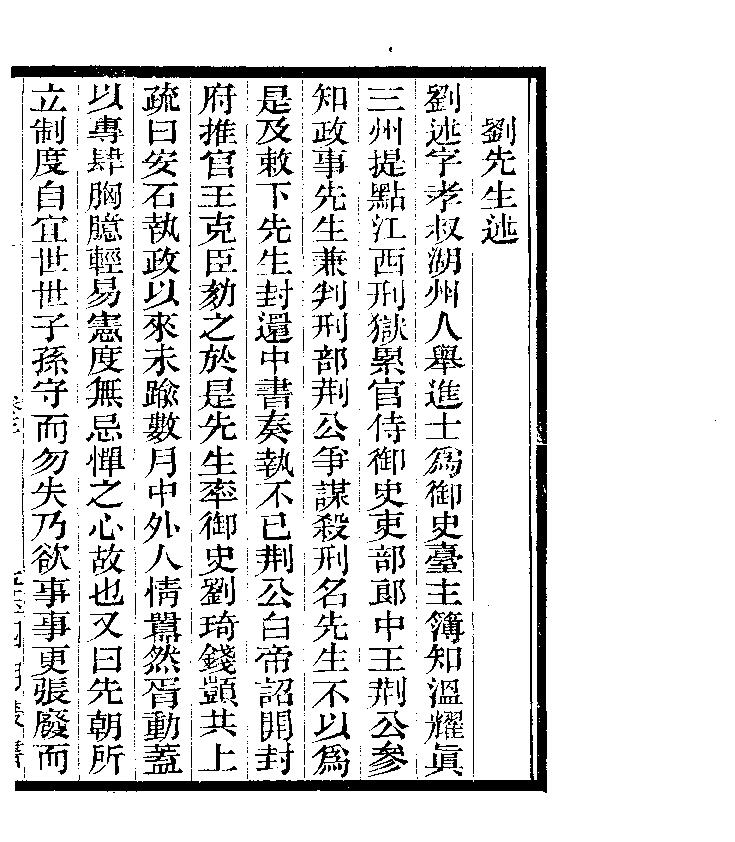 劉先生述
劉述字孝叔湖州人舉進士爲御史臺主簿知溫耀眞
三州提點江西刑獄累官侍御史吏部郎中王荆公參
知政事先生兼判刑部荆公爭謀殺刑名先生不以爲
是及敕下先生封還中書奏執不已荆公白帝詔開封
府推官王克臣劾之於是先生率御史劉琦錢顗共上
疏曰安石執政以來未踰數月中外人情囂然胥動蓋
以專肆胸臆輕易憲度無忌憚之心故也又曰先朝所
立制度自宜世世子孫守而勿失乃欲事事更張廢而